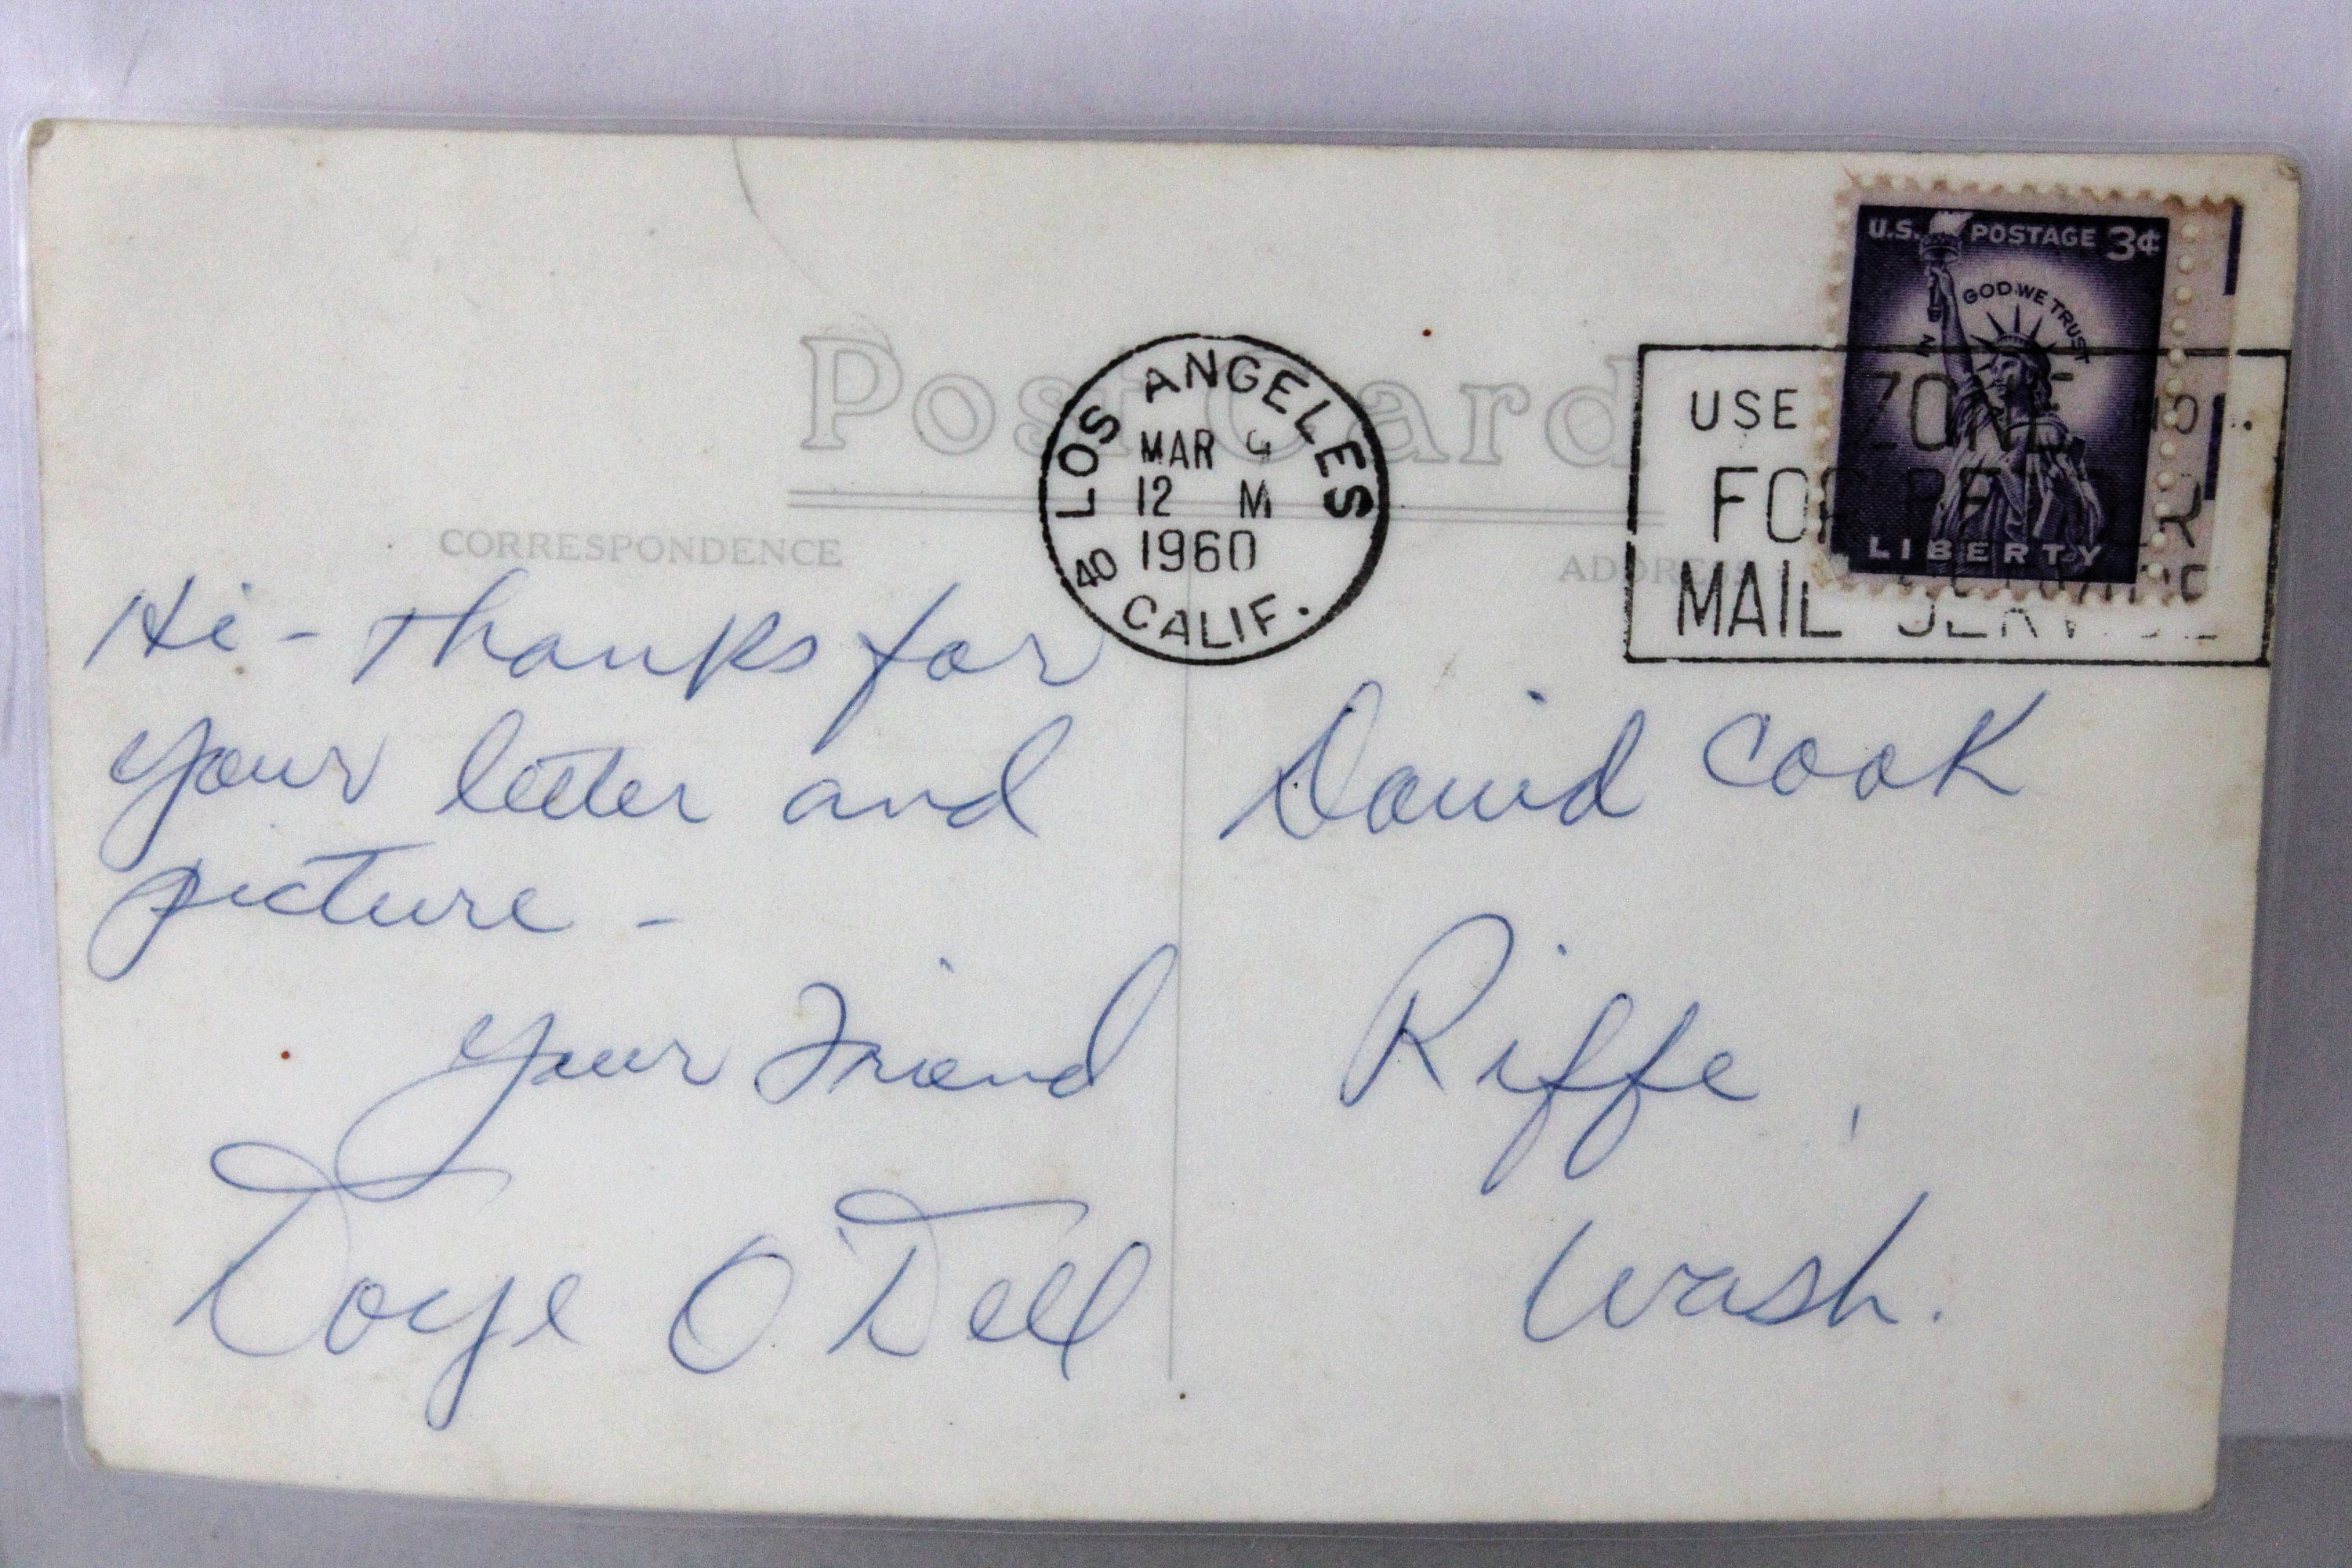 Post Card
CORRESPONDENCE
ADDRESS
LOS ANGELES
MAR
12 M
1960
40 CALIF.
USE ZONE NO.
FOR BETTER
MAIL SERVICE
U.S. POSTAGE 3¢
IN GOD WE TRUST
LIBERTY
Hi - Thanks for
your letter and
picture -
your Friend
Doye O'Dell
David Cook
Riffe,
Wash.